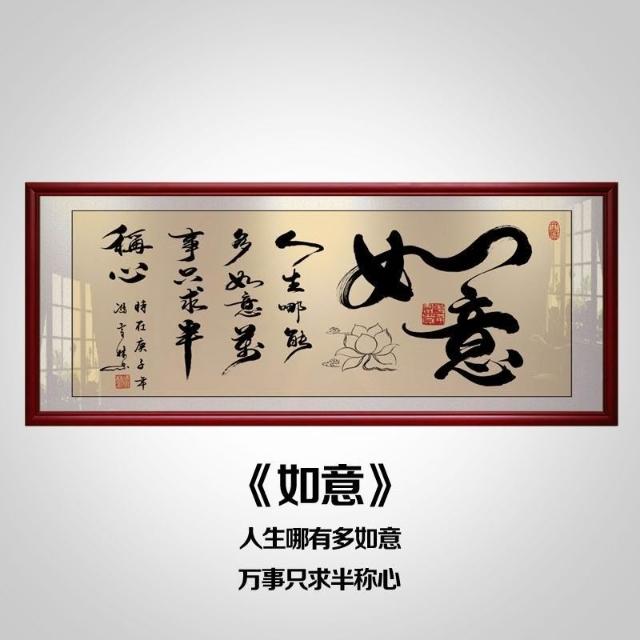 如意
人生哪能
多如意萬
事只求半
稱心
時在庚子年
《如意》
人生哪有多如意
万事只求半称心